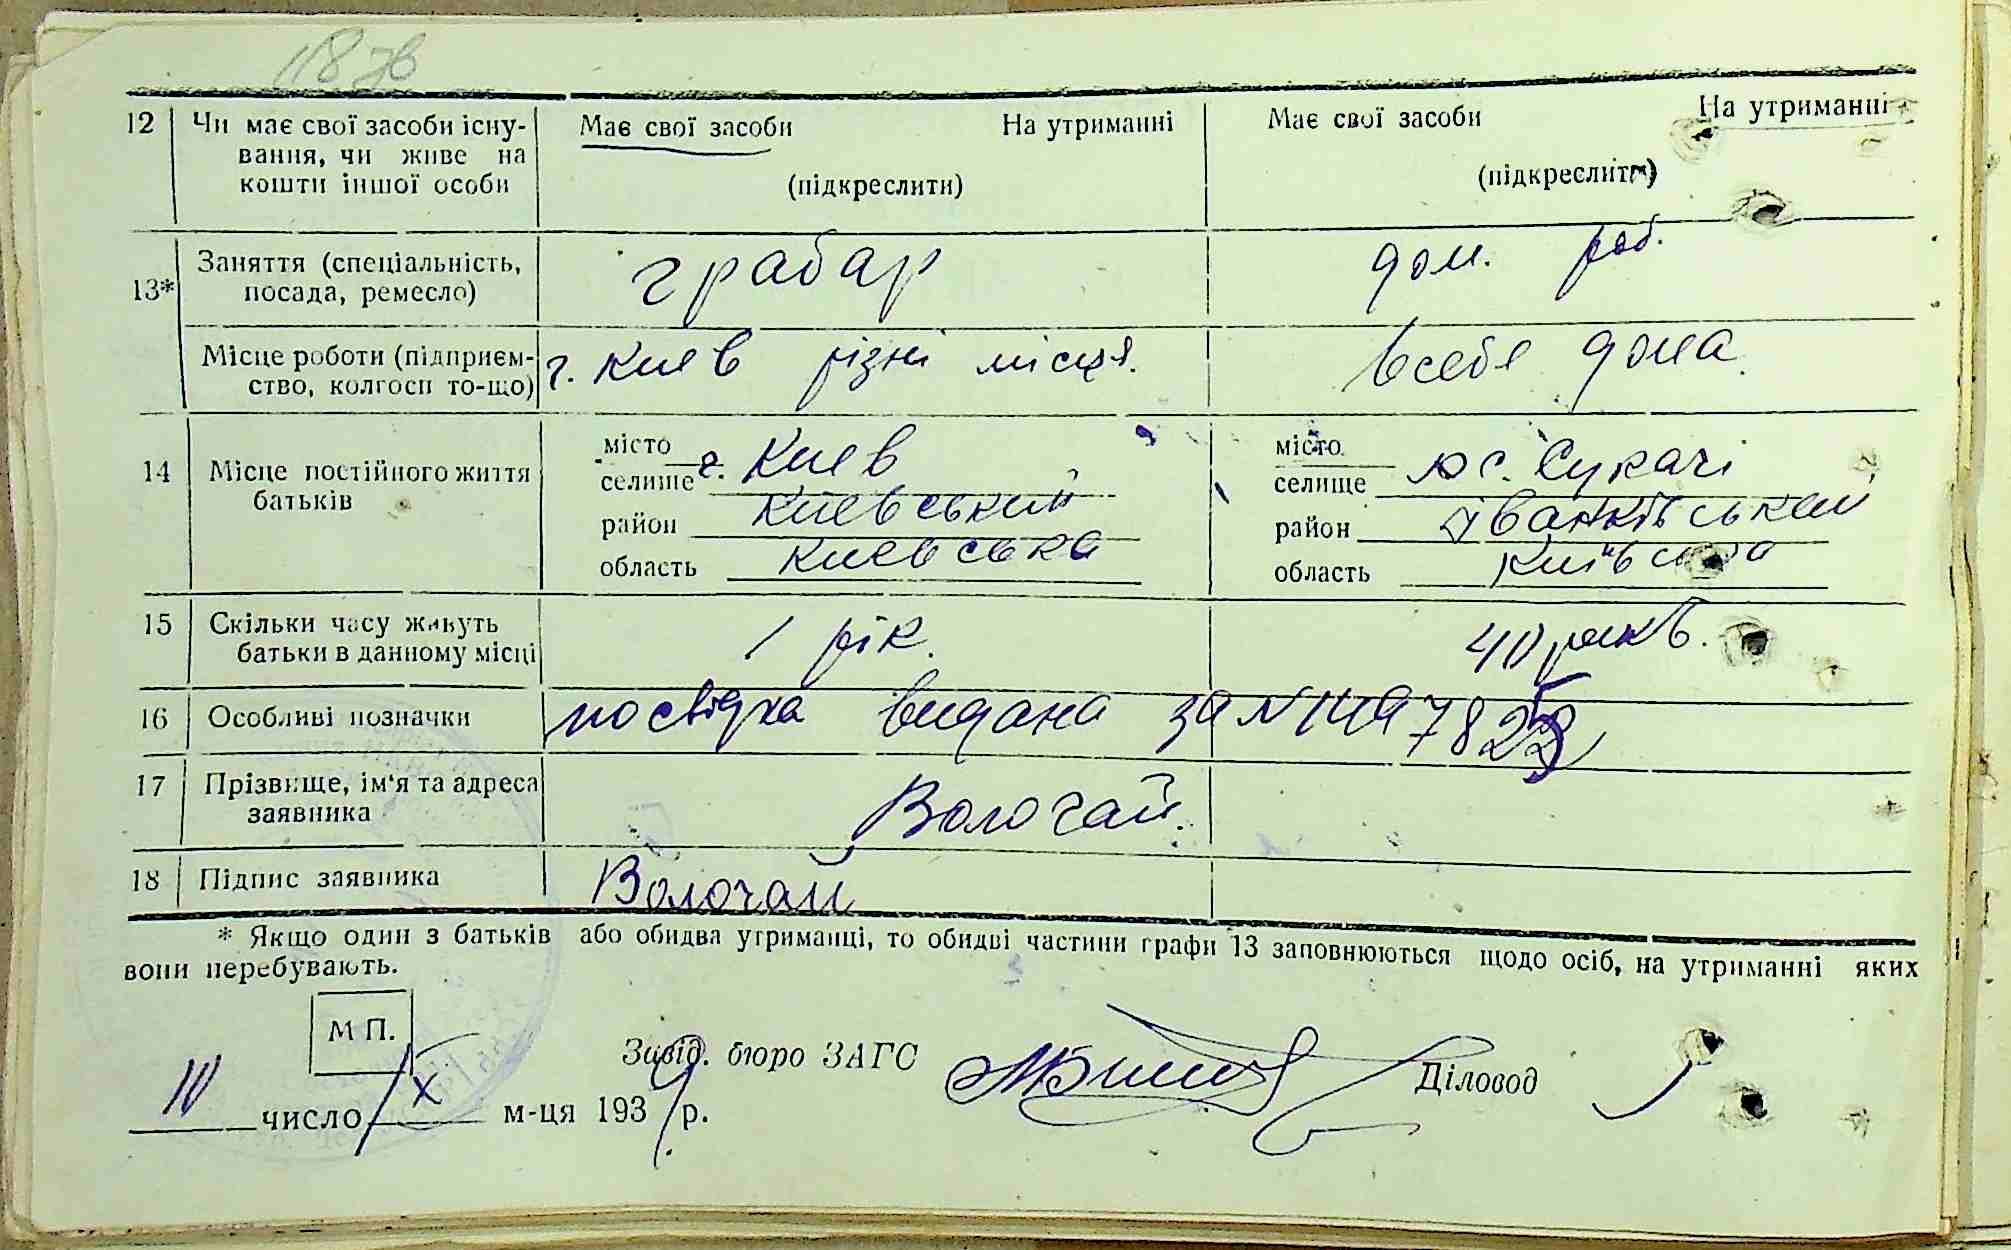 12 Чи має свої засоби існу- Має свої засоби На утриманні Має свої засоби На утриманні
вання, чи живе на
кошти іншої особи (підкреслити) (підкреслити)
13* Заняття (спеціальність, грабар дом. роб.
посада, ремесло)
Місце роботи (підприєм- г. Киев різні місця. в себе дома.
ство, колгосп то-що)
14 Місце постійного життя місто г. Киев місто с. Сукачі
батьків селище селище
район Киевський район Іванківський
область Киевська область Київська
15 Скільки часу живуть 1 рік. 40 років.
батьки в данному місці
16 Особливі позначки посвідка видана за №
17 Прізвище, ім'я та адреса Волочай.
заявника
18 Підпис заявника Волочай
* Якщо один з батьків або обидва утриманці, то обидві частини графи 13 заповнюються щодо осіб, на утриманні яких
вони перебувають.
М П.
Завід. бюро ЗАГС Діловод
10 число X м-ця 1939 р.